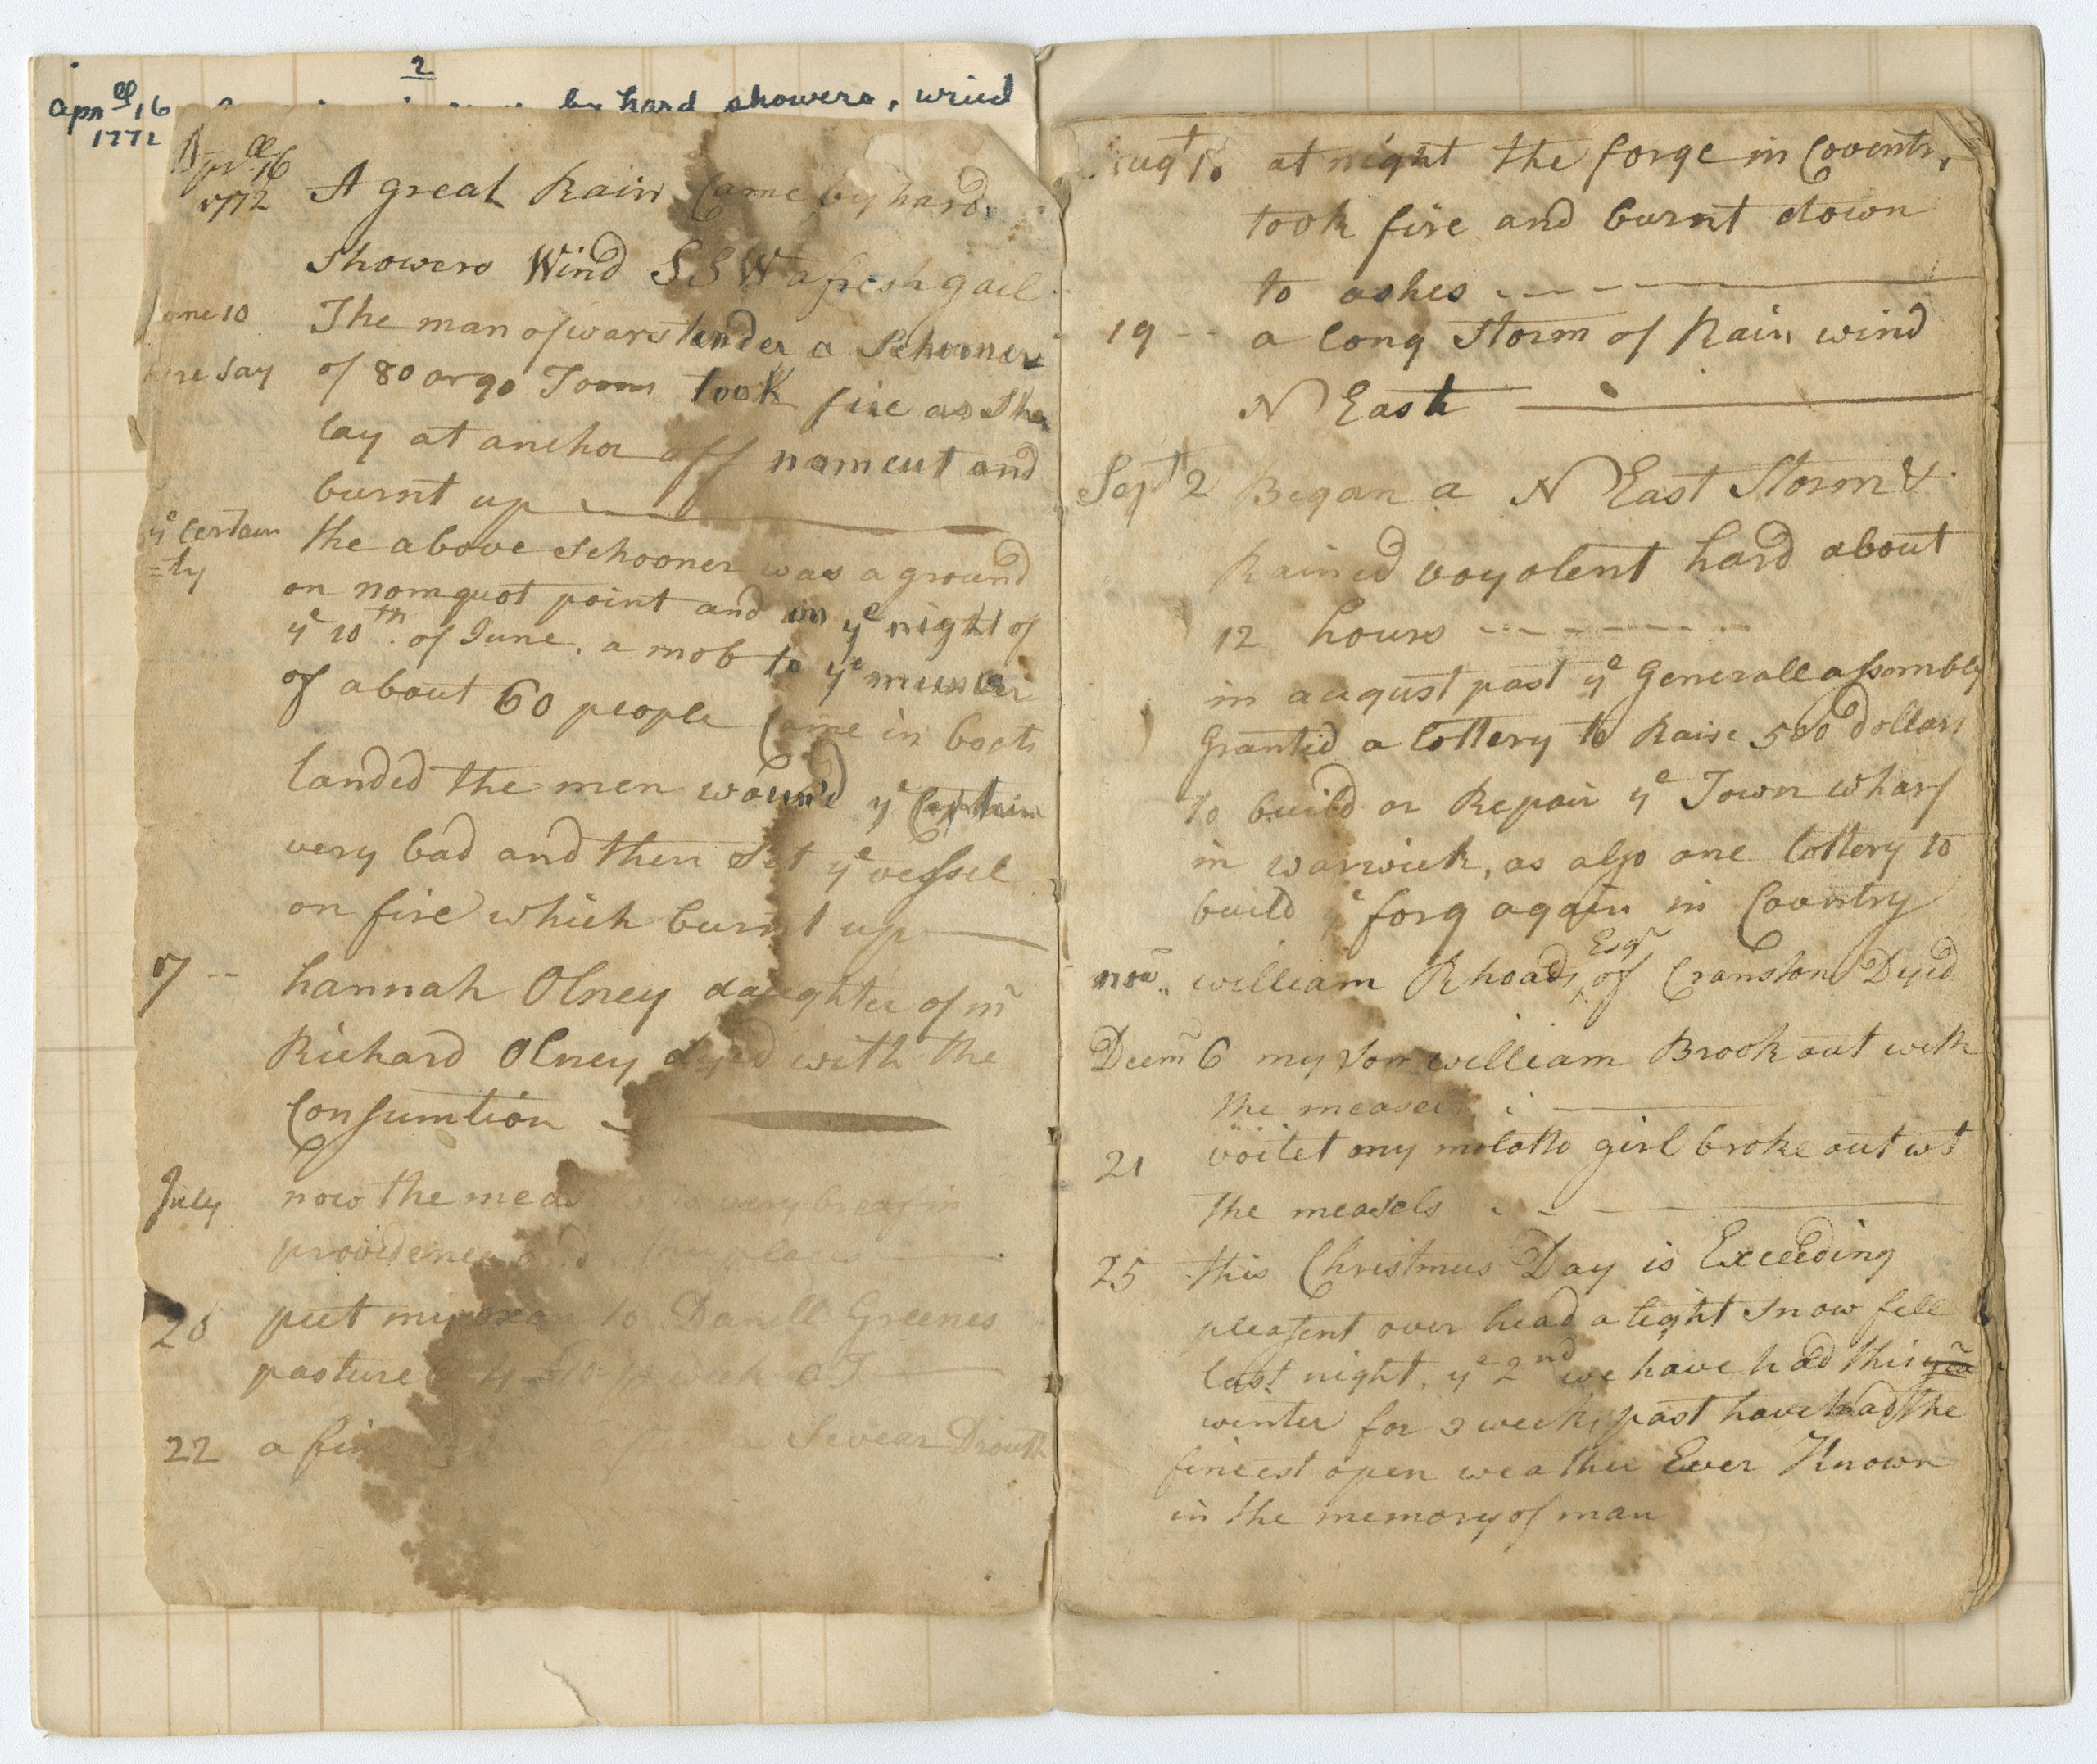 2
Apr ll 16 by hard showers, wind
1772
Apr ll 16
1772 A great Rain Came by hard
showers Wind SSW a fresh gail
June 10 The man of wars tender a Schooner
here say of 80 or 90 Toons took fire as She
lay at ancho off namcut and
burnt up
ye Certain the above schooner was a ground
=ty on nomquot point and in ye night of
ye 10th. of June, a mob to ye number
of about 60 people Came in boats
landed the men wound ye Captain
very bad and then Set ye vessel
on fire which burnt up
17 -- hannah Olney daughter of mr
Richard Olney dyed with the
Consumtion
July now the meas very breaf in
providence and this place
20 put my oxen to Darell Greenes
pasture week
22 a fine Sevear Drouth
Augt 18 at night the forge in Coventr,
took fire and burnt down
to ashes
19 -- a long Storm of Rain wind
N East
Sept 2 Began a N East Storm &
Rained voyolent hard about
12 hours
in august past ye Generall assembly
Grantid a lottery to Raise 500 dollars
to build or Repair ye Town wharf
in warwick, as also one lottery to
build ye forg again in Coventry
Esqr
nov.. william Rhoads ^ of Cranston Dyed
Decm 6 my Son william Brook out with
the measel
21 voilet my molatto girl broke out wt
the measels
25 this Christmus Day is Exceeding
pleasent over head a light snow fell
last night, ye 2nd we have had this yea
winter for 3 weeks past have had the
fineest open weather Ever Known
in the memory of man